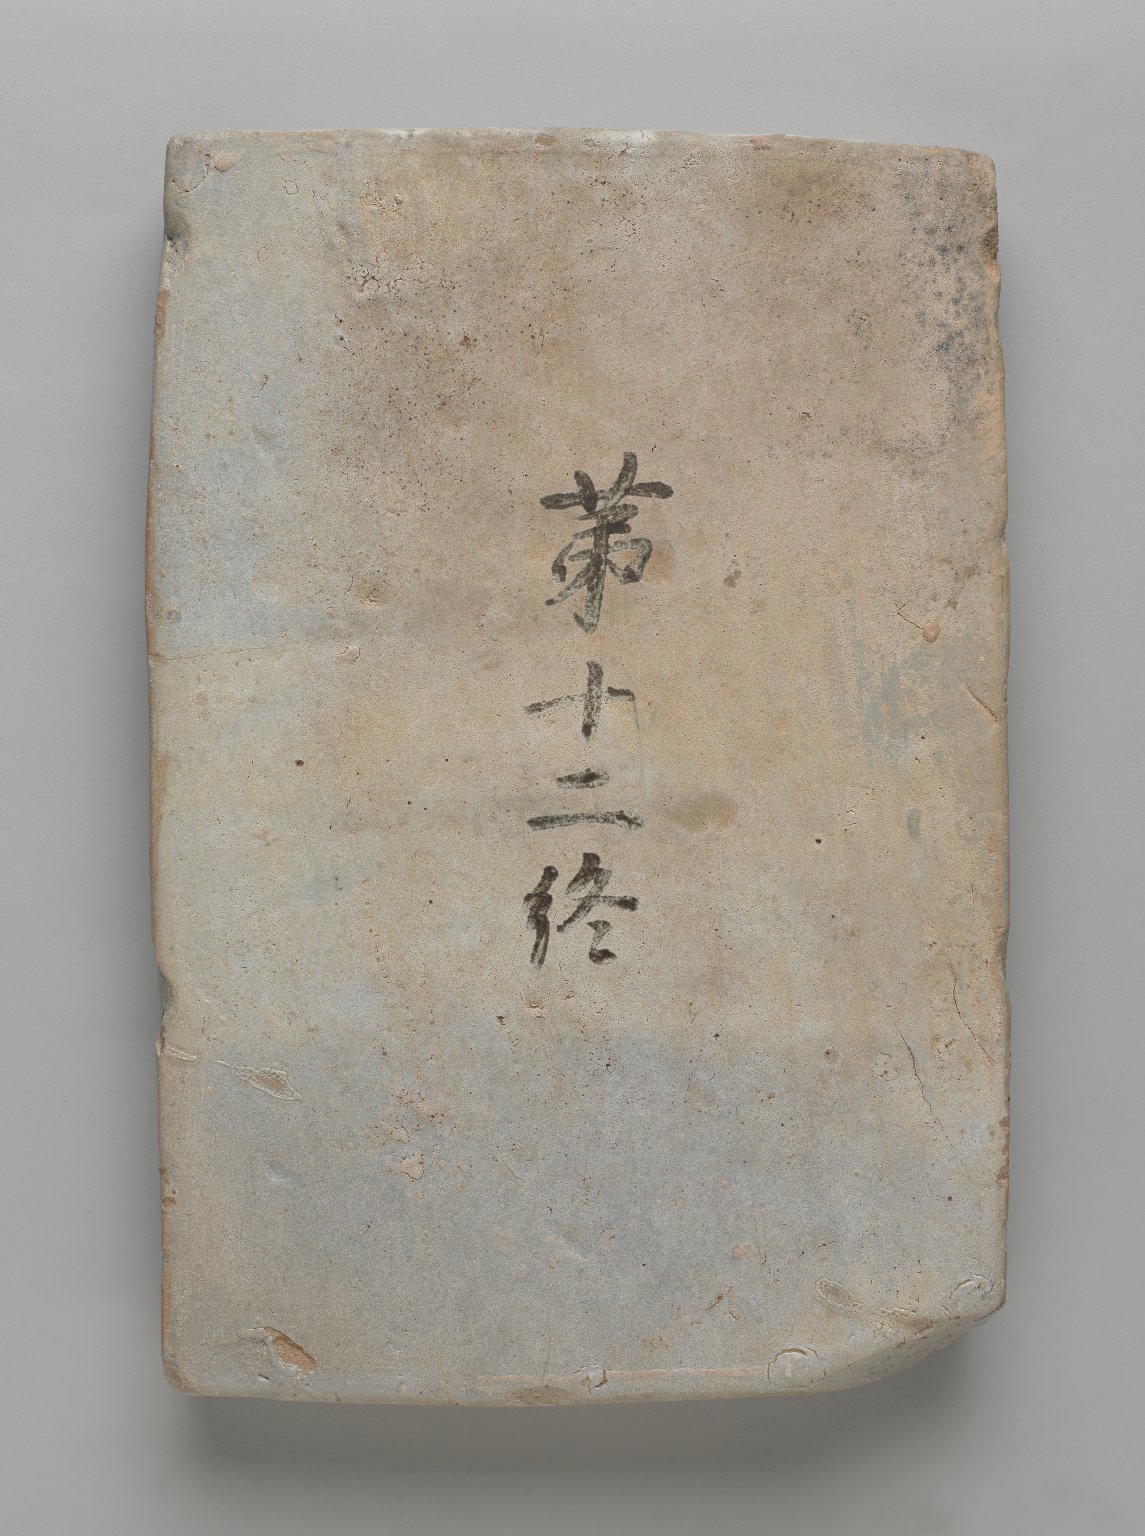 第十二終